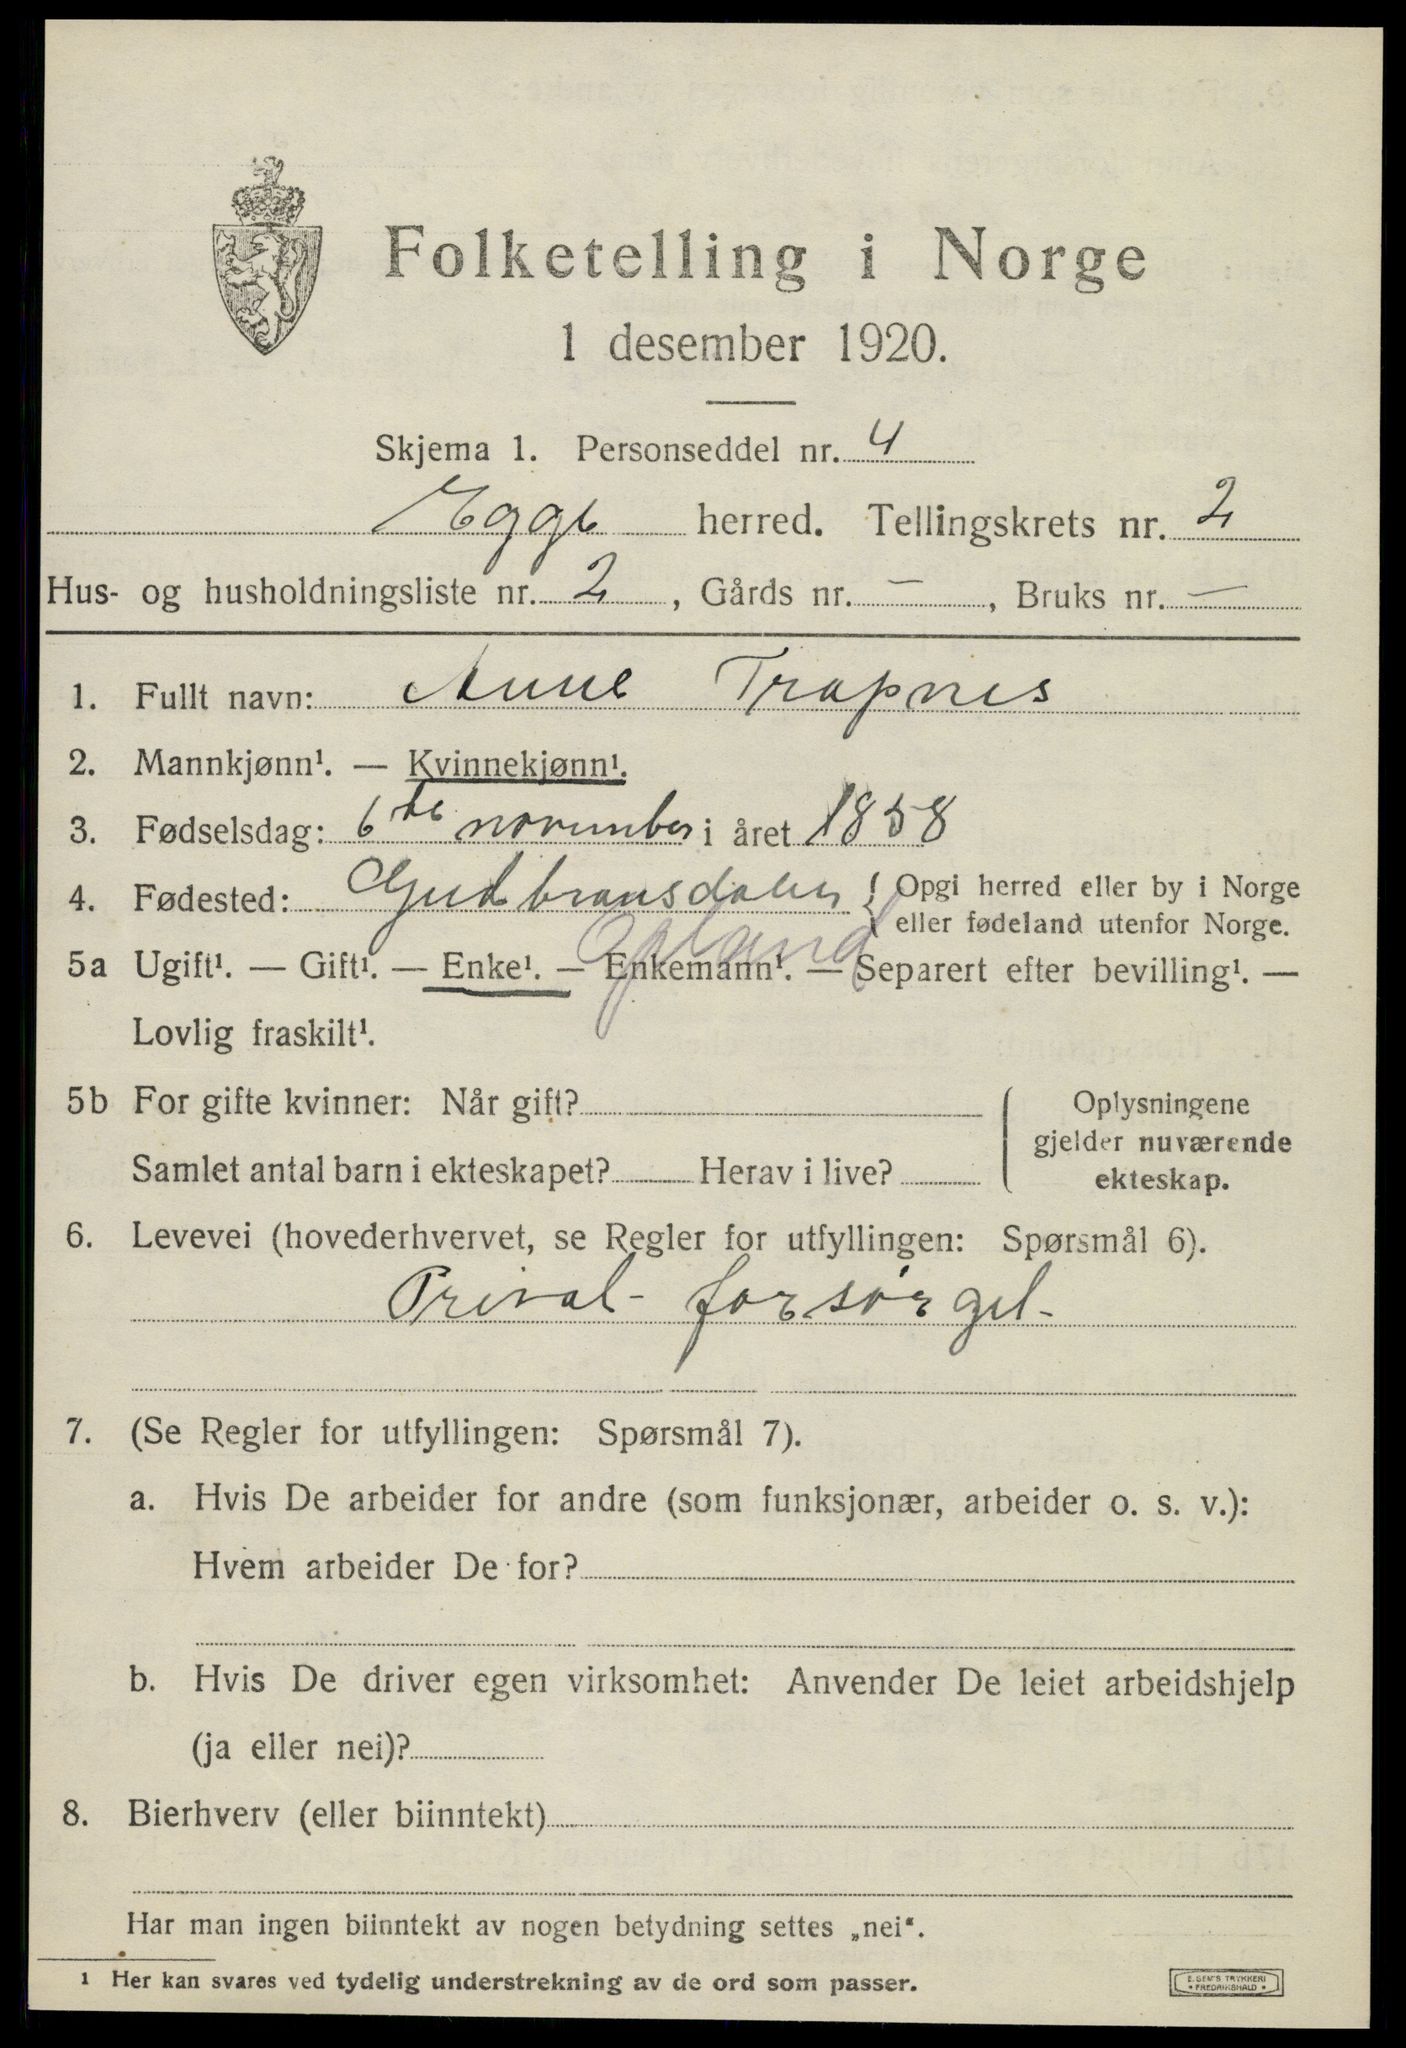 Folketelling i Norge
1 desember 1920.
Skjema 1. Personseddel nr. 4
Egge herred. Tellingskrets nr. 2
Hus- og husholdningsliste nr. 2, Gårds nr. —, Bruks nr. —
1. Fullt navn: Anne Trapnes
2. Mannkjønn¹. — Kvinnekjønn¹.
3. Fødselsdag: 6te november i året 1858
4. Fødested: Gudbransdalen { Opgi herred eller by i Norge
eller fødeland utenfor Norge.
Opland
5a Ugift¹. — Gift¹. — Enke¹. — Enkemann¹. — Separert efter bevilling¹. —
Lovlig fraskilt¹.
5b For gifte kvinner: Når gift? { Oplysningene
gjelder nuværende
Samlet antal barn i ekteskapet? Herav i live? ekteskap.
6. Levevei (hovederhvervet, se Regler for utfyllingen: Spørsmål 6).
Privat forsørget
7. (Se Regler for utfyllingen: Spørsmål 7).
a. Hvis De arbeider for andre (som funksjonær, arbeider o. s. v.):
Hvem arbeider De for?
b. Hvis De driver egen virksomhet: Anvender De leiet arbeidshjelp
(ja eller nei)?
8. Bierhverv (eller biinntekt)
Har man ingen biinntekt av nogen betydning settes „nei“.
1 Her kan svares ved tydelig understrekning av de ord som passer.
E. SEM'S TRYKKERI
• FREDRIKSHALD •